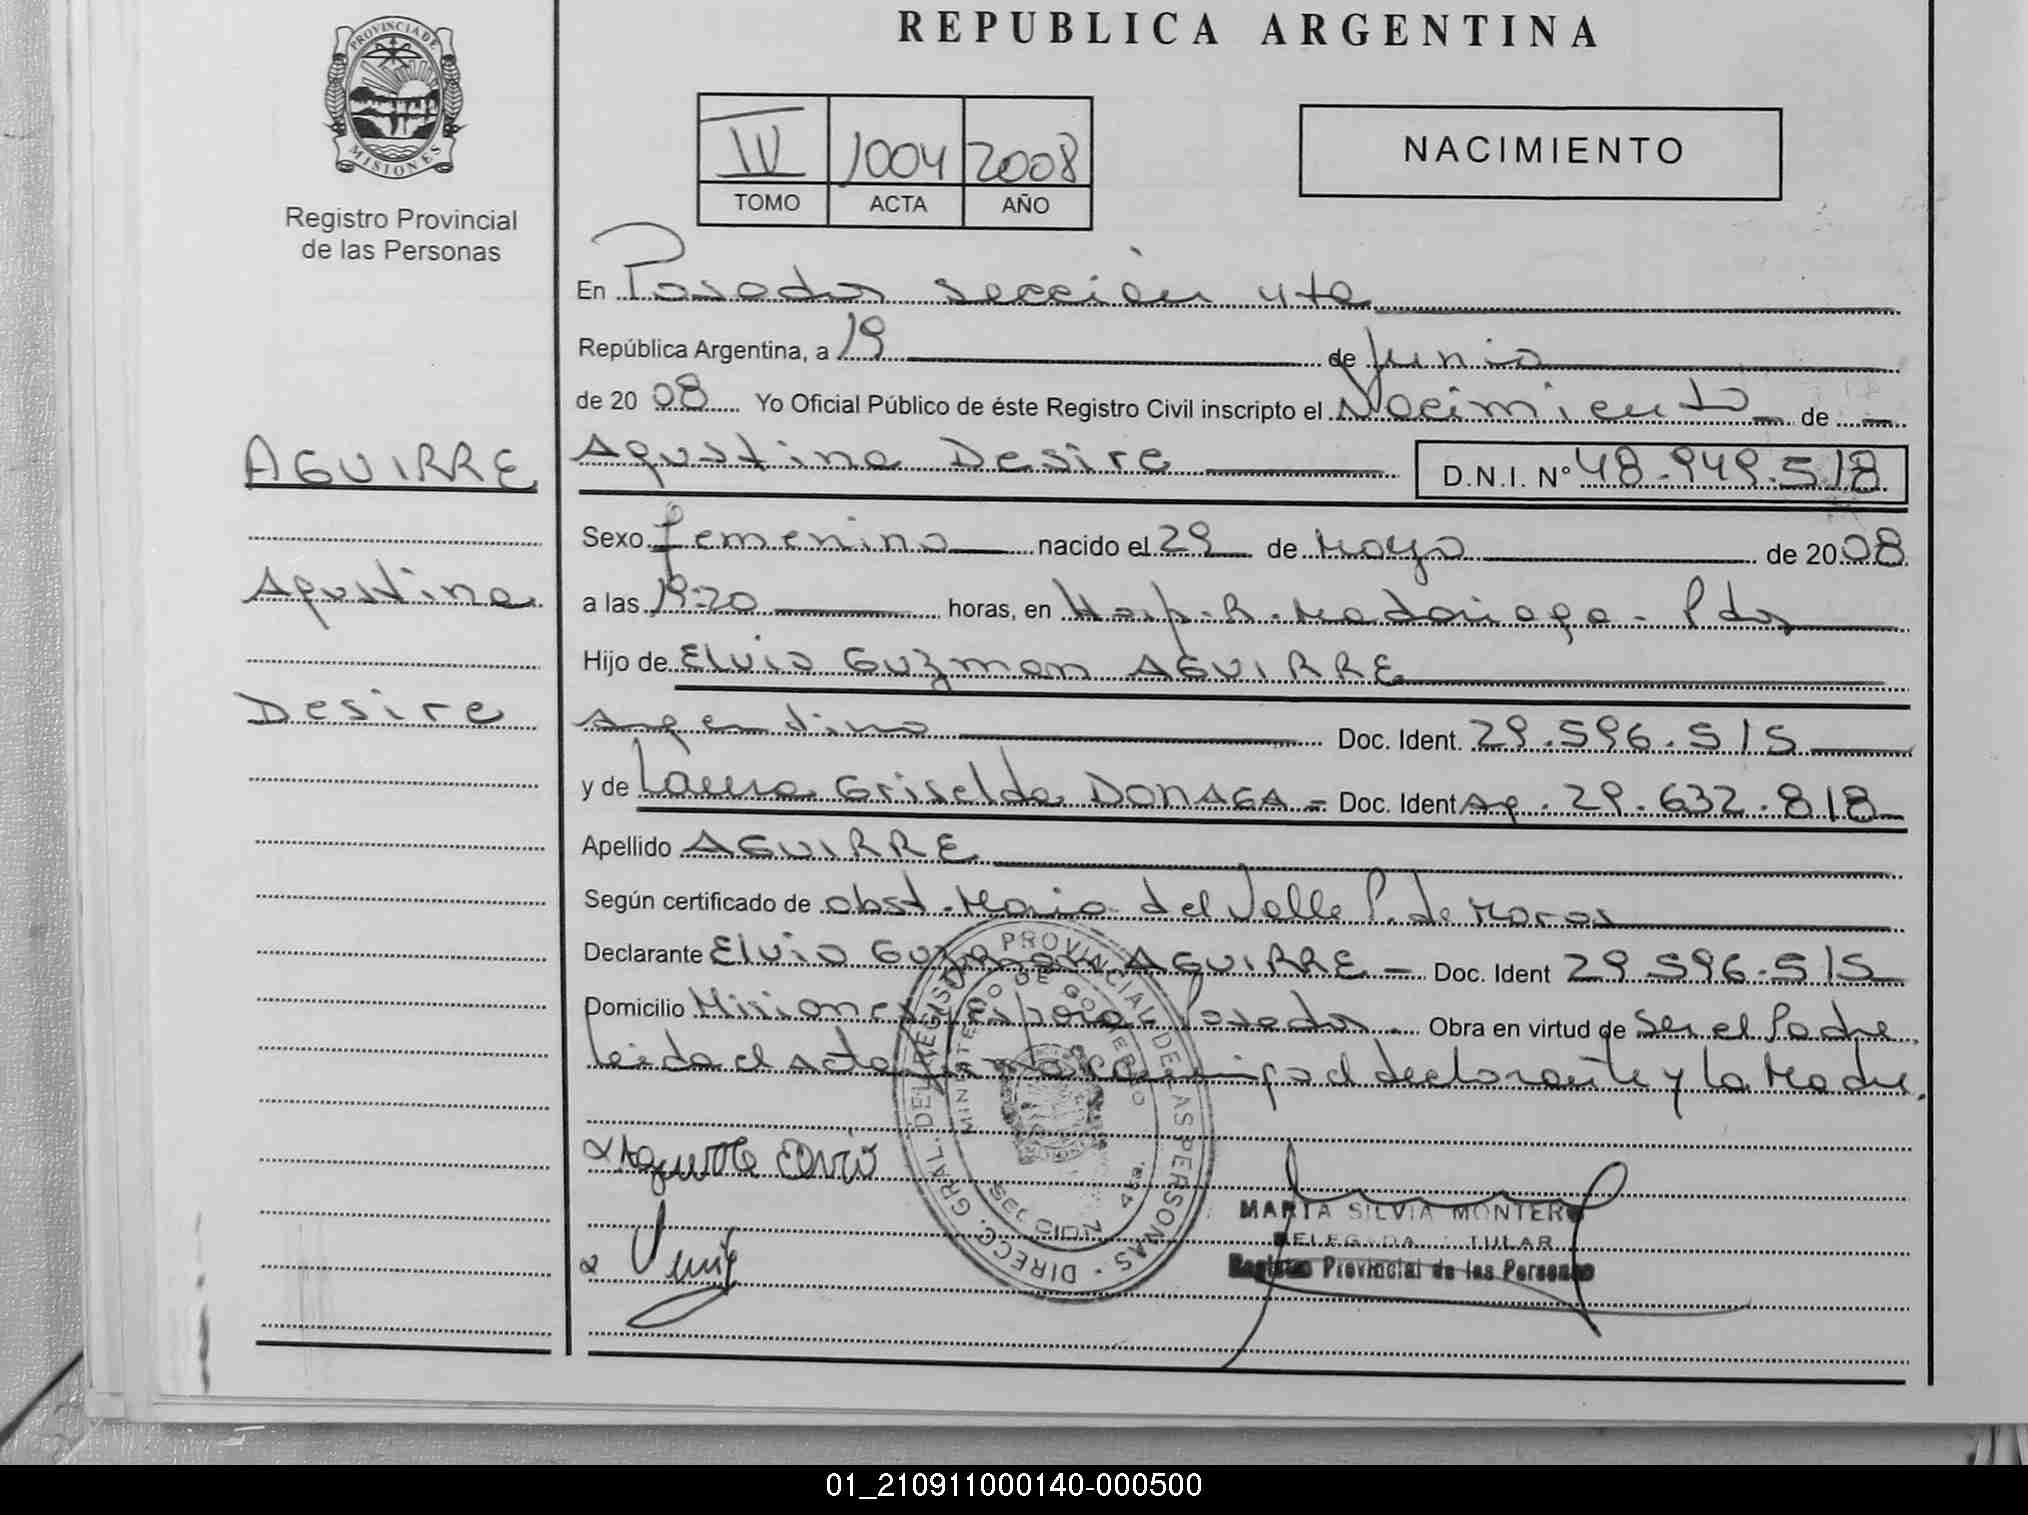 REPUBLICA ARGENTINA
PROVINCIA DE
MISIONES
Registro Provincial
de las Personas
IV 1004 2008
TOMO ACTA AÑO
NACIMIENTO
En Posadas sección 4ta
República Argentina, a 19 de Junio
de 2008 Yo Oficial Público de éste Registro Civil inscripto el Nacimiento de
AGUIRRE
Agustina
Desire
Agustina Desire D.N.I. Nº 48.949.518
Sexo femenino nacido el 29 de Mayo de 2008
a las 19:20 horas, en Hosp. R. Madariaga - Pdas
Hijo de Elvio Guzman AGUIRRE
Argentino Doc. Ident. 29.596.515
y de Laura Griselda DONAGA = Doc. Ident Ap. 29.632.818
Apellido AGUIRRE
Según certificado de obst. Maria del Valle P. de
Declarante Elvio Guzman AGUIRRE - Doc. Ident 29.596.515
Domicilio Misiones y Posadas. Obra en virtud de ser el Padre.
Leida el acta firma conmigo el declarante y la Madre.
Aguirre Elvio
DIRECC. GRAL. DEL REGISTRO PROVINCIAL DE LAS PERSONAS
MINISTERIO DE GOBIERNO
SECCION 4ta.
MARTA SILVIA MONTERO
DELEGADA TITULAR
Registro Provincial de las Personas
01_210911000140-000500